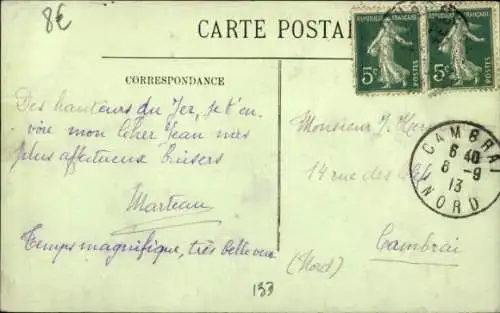 8€
CARTE POSTALE
REPUBLIQUE FRANÇAISE
5c POSTES
5c POSTES
CORRESPONDANCE
Des hauteurs du Jer, je t'en
voie mon cher Jean mes
plus affectueux baisers
Marteau
Temps magnifique, très belle vue
Monsieur J.
14 rue des
Cambrai
(Nord)
CAMBRAI
6 40
8 -9
13
NORD
133